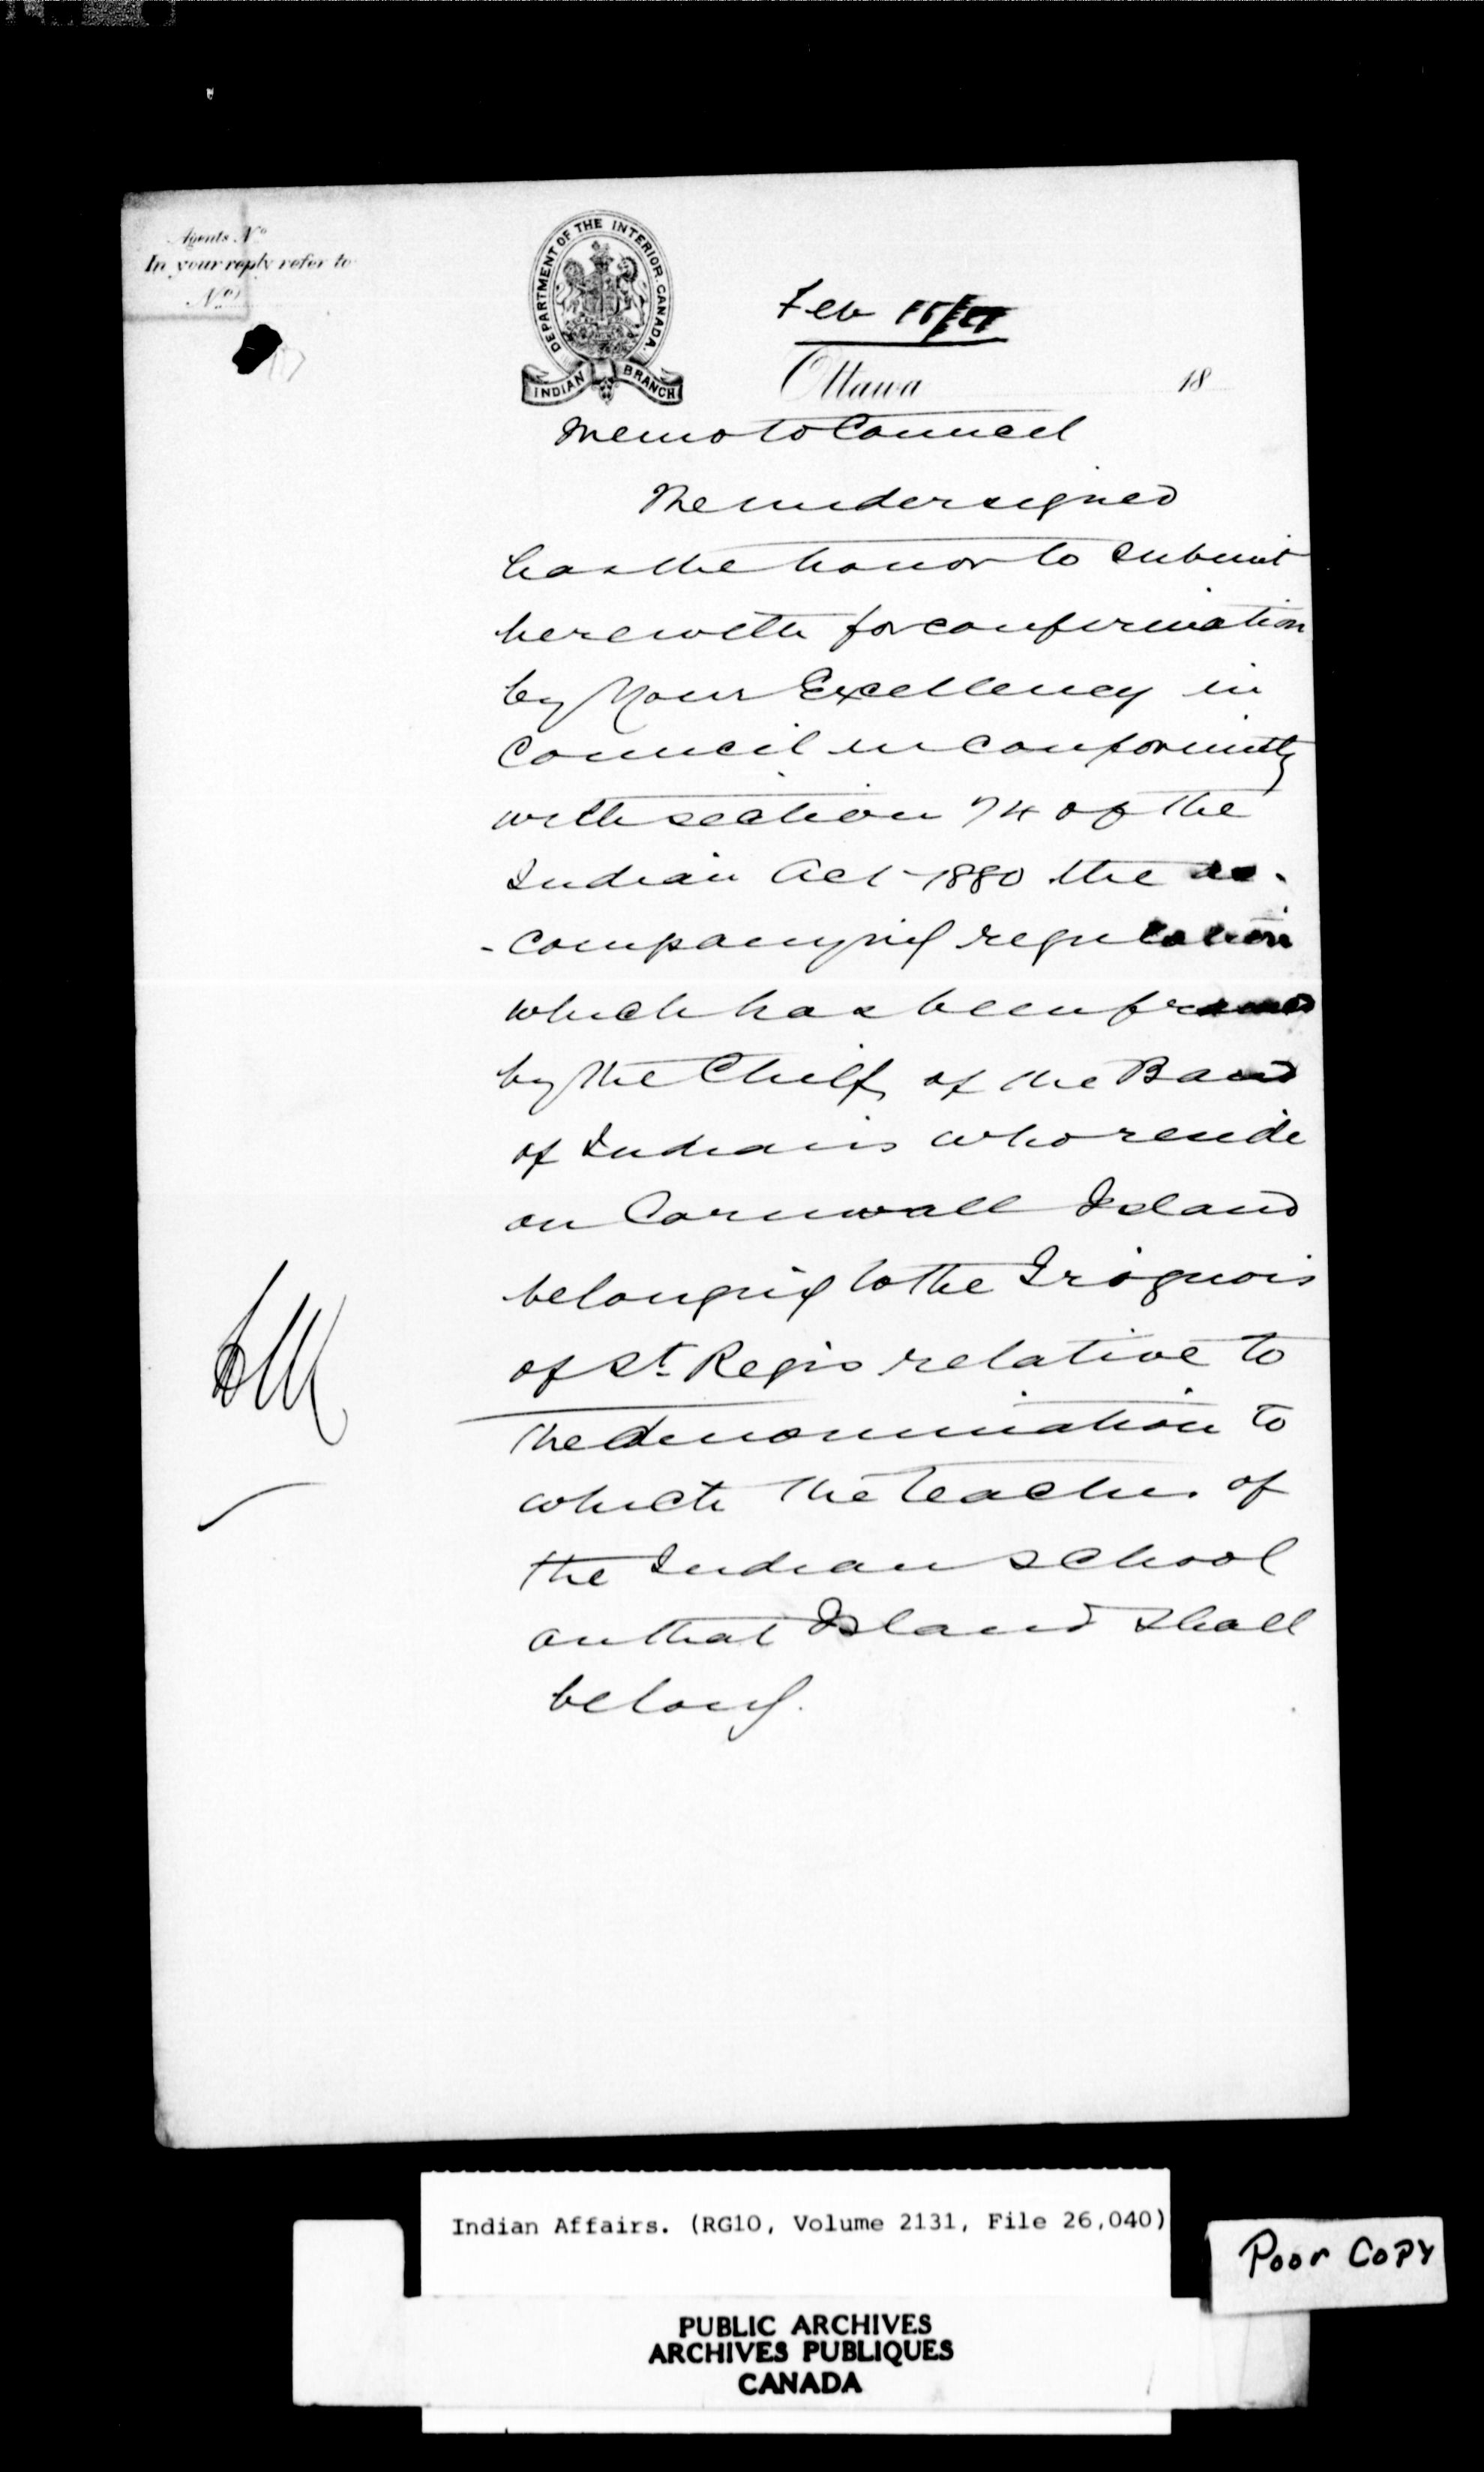 Agents No
In your reply refer to
No
DEPARTMENT OF THE INTERIOR. CANADA.
INDIAN BRANCH
Feb
Ottawa 18
Memo to Council
The undersigned
has the honor to submit
herewith for confirmation
by Your Excellency in
Council in conformity
with section 74 of the
Indian Act 1880 the ac-
-companying regulation
which has been framed
by the Chiefs of the Band
of Indians who reside
on Cornwall Island
belonging to the Iroquois
of St. Regis relative to
the denomination to
which the teacher of
the Indian School
on that Island shall
belong.
Indian Affairs. (RG10, Volume 2131, File 26,040)
Poor Copy
PUBLIC ARCHIVES
ARCHIVES PUBLIQUES
CANADA